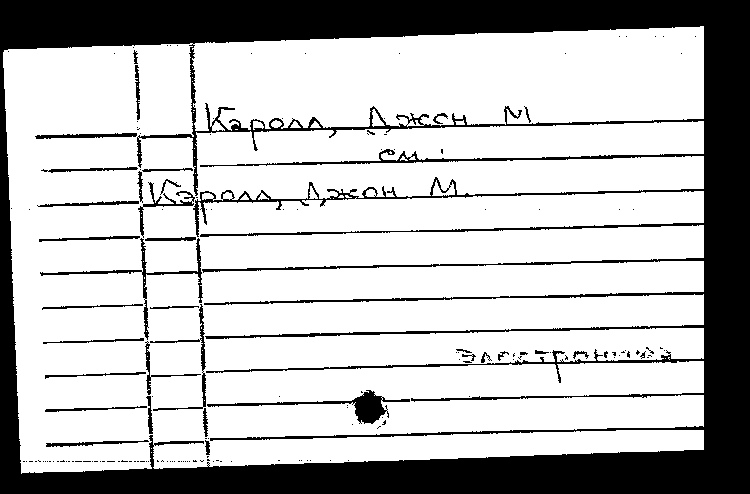 Каролл, Джон М
см.:
Кэролл, Джон М.
электроника